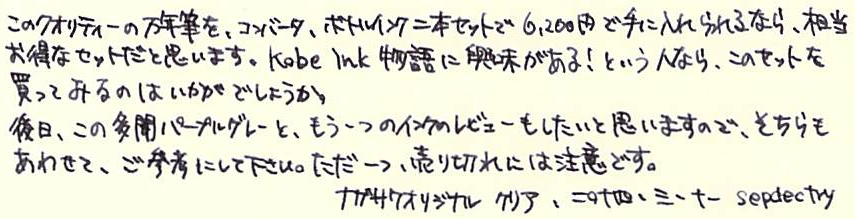 このクオリティーの万年筆を、コンバータ、ボトルインク二本セットで 6,200円で手に入れられるなら、相当
お得なセットだと思います。Kobe Ink 物語に興味がある!という人なら、このセットを
買ってみるのはいかがでしょうか。
後日、この多聞パープルグレーと、もう一つのインクのレビューもしたいと思いますので、そちらも
あわせて、ご参考にして下さい。ただ一つ、売り切れには注意です。
ナガサワオリジナル クリア、ニブ